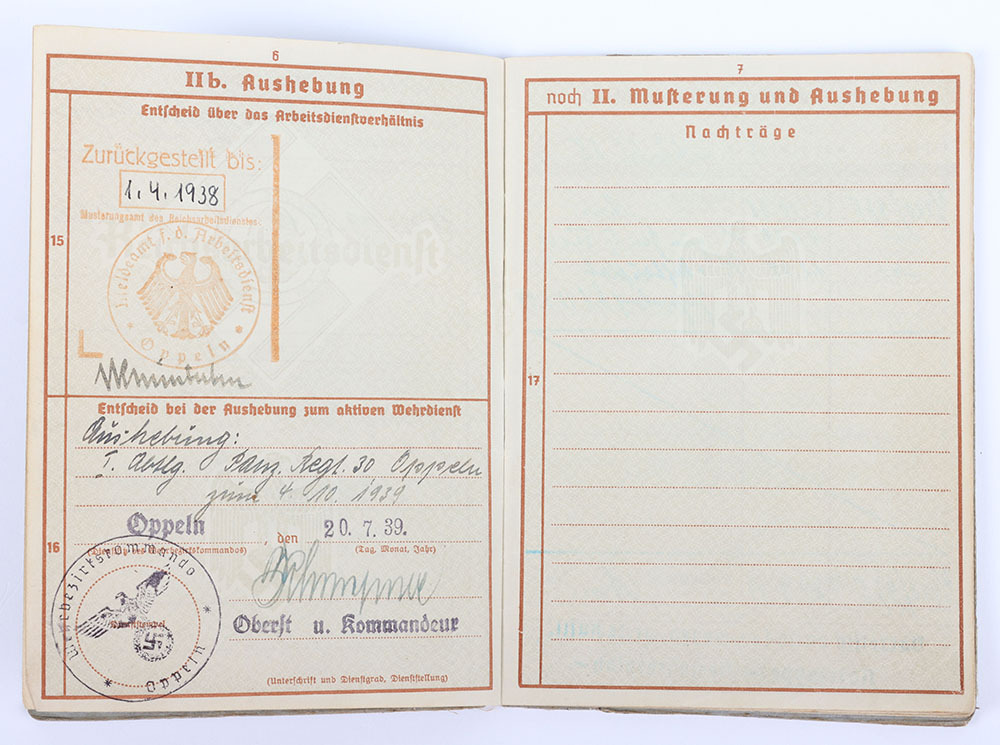 6
IIb. Aushebung
Entscheid über das Arbeitsdienstverhältnis
Zurückgestellt bis:
1.4.1938
Musterungsamt des Reichsarbeitsdienstes
15
Reichsarbeitsdienst
Meldeamt f. d. Arbeitsdienst
* Oppeln *
Entscheid bei der Aushebung zum aktiven Wehrdienst
Aushebung:
I. Abtlg. Panz. Regt. 30 Oppeln
zum 4. 10. 1939
Oppeln, den 20. 7. 39.
(Dienstsitz des Wehrbezirkskommandos) (Tag, Monat, Jahr)
16
Wehrbezirkskommando
* Oppeln *
Dienststempel
Oberst u. Kommandeur
(Unterschrift und Dienstgrad, Dienststellung)
7
noch II. Musterung und Aushebung
Nachträge
17